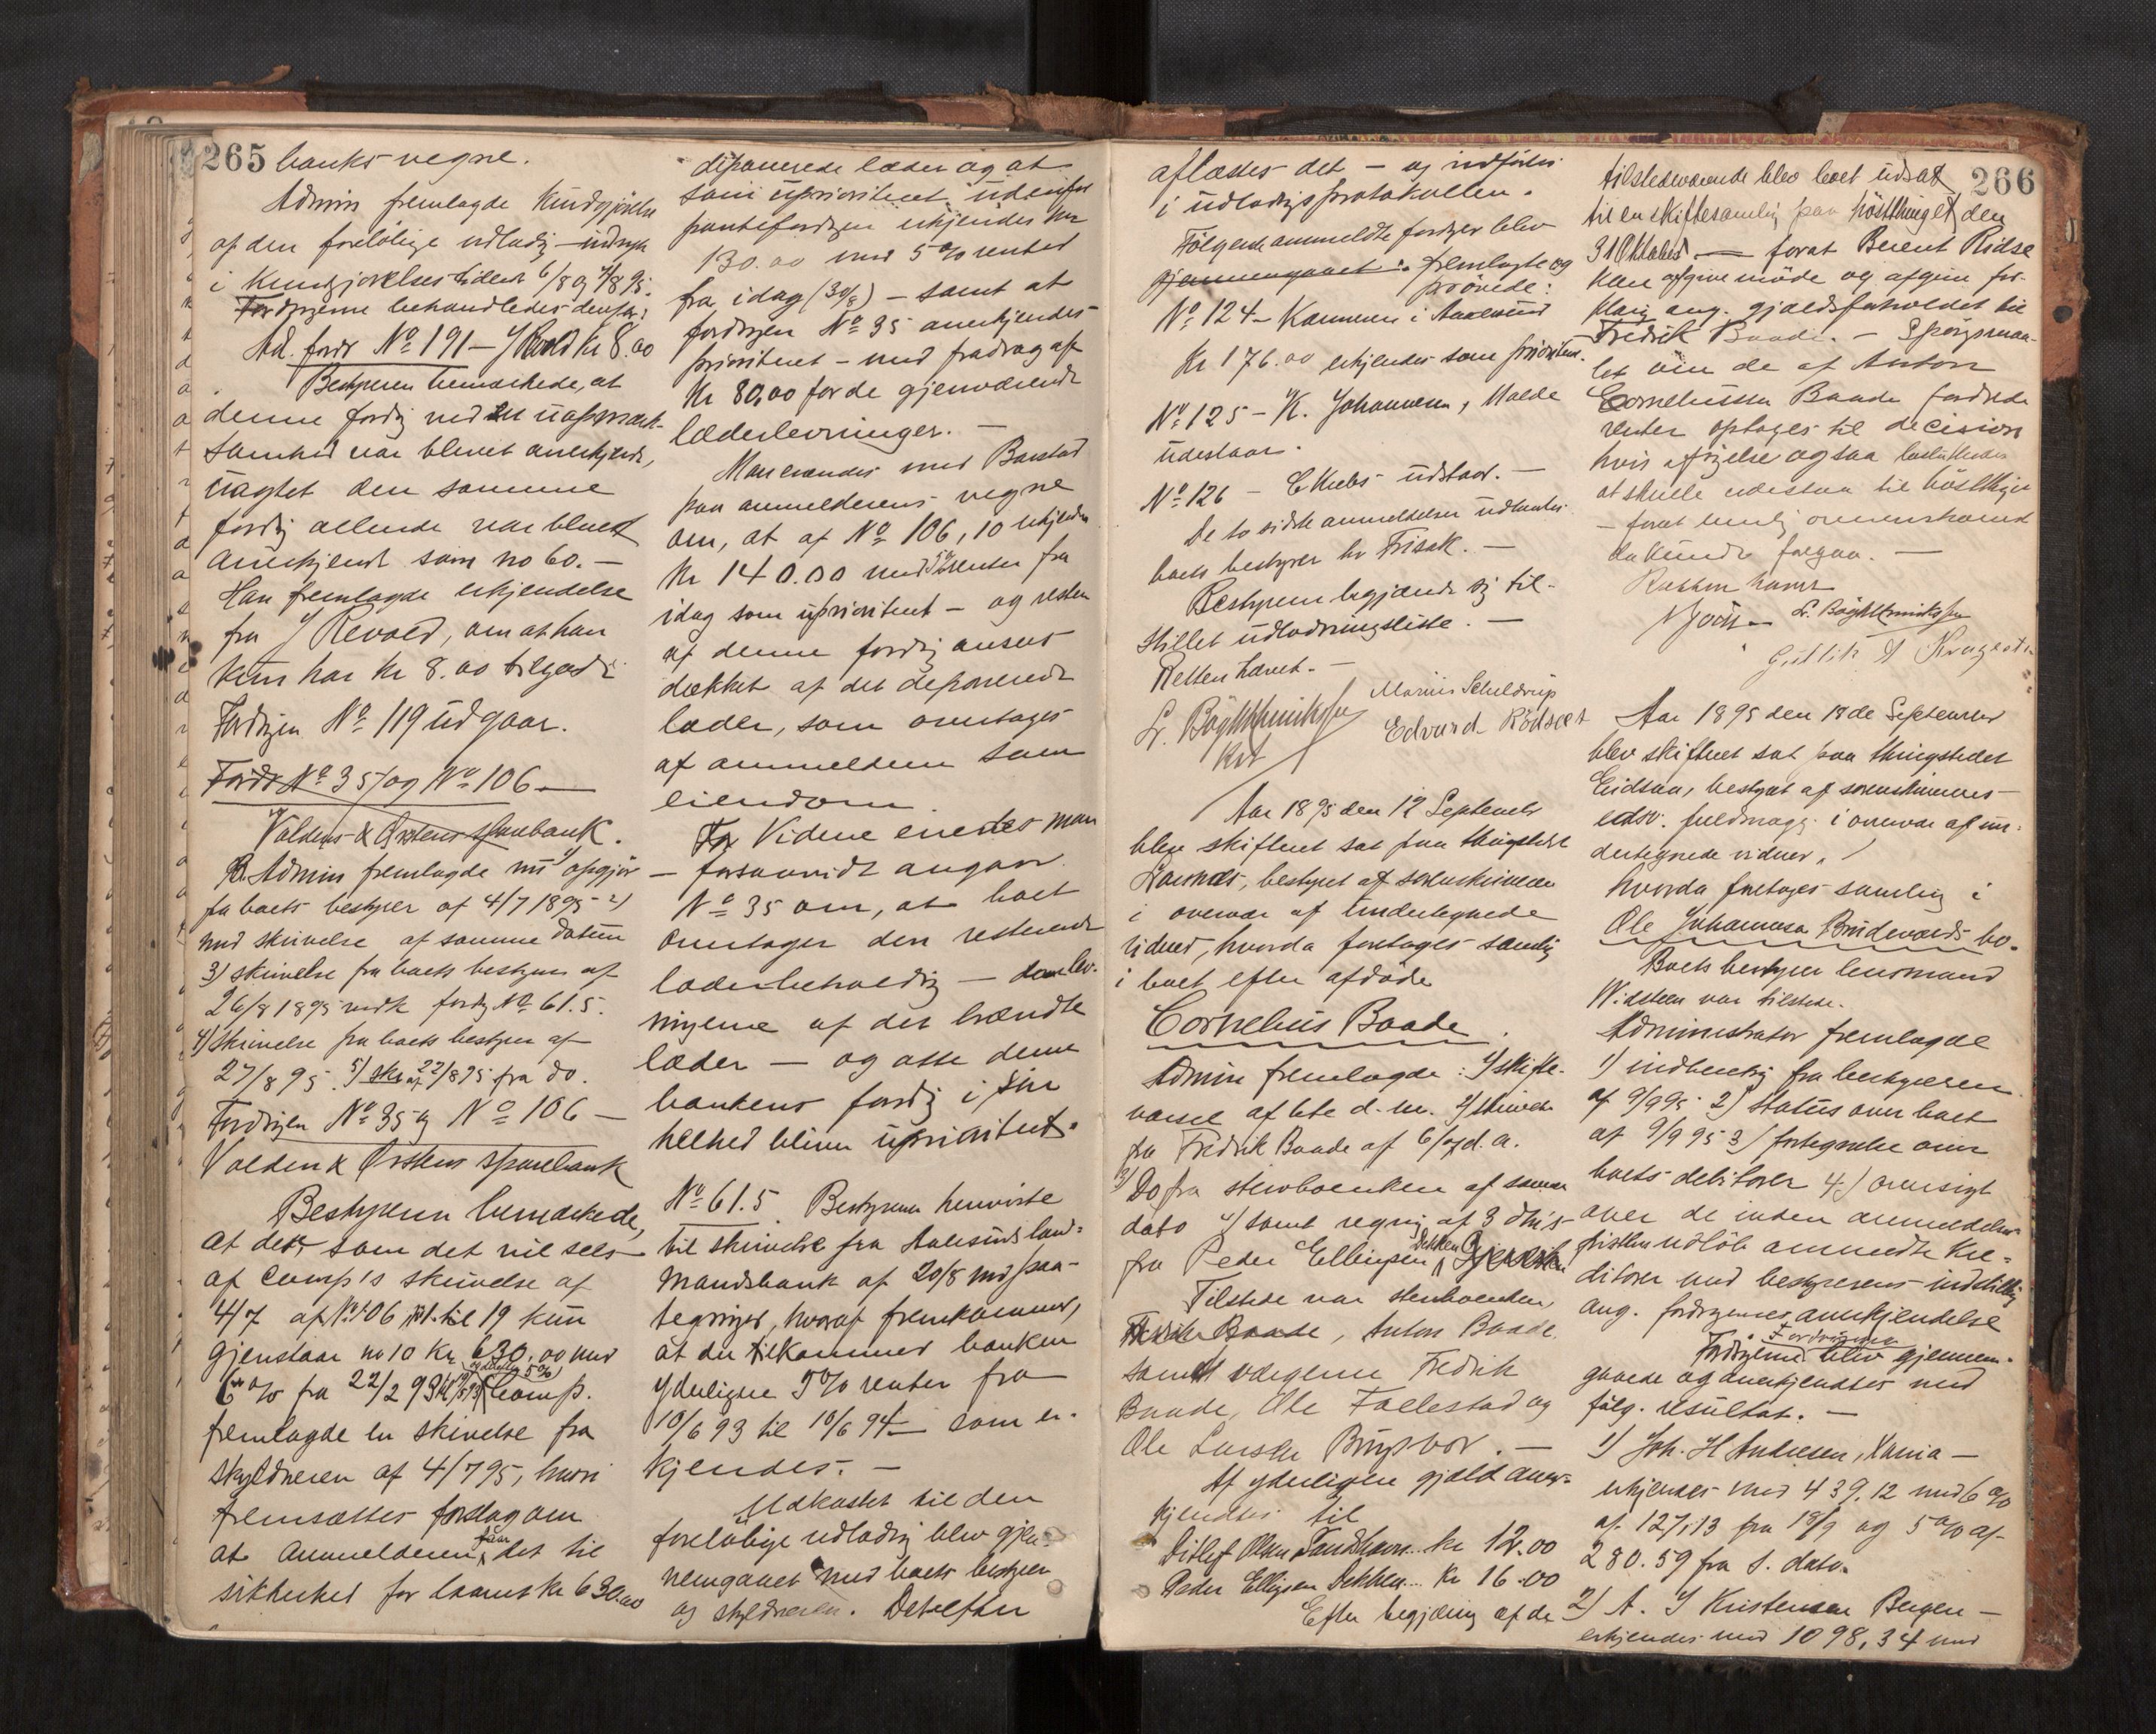 265 banks vegne.
Admin fremlagde Kundgjörelse
af den forelöbige udlodg - indryk
i Kundgjörelsestidende 6/8 og 9/8 95.
Fordrgerne behandledes derefter:
Ad. fordr No 191 - J Revold Kr 8.00
Bestyreren bemærkede, at
denne fordrg ved en uopmærk-
somhed var blevet anerkjendt,
uagtet den samme
fordrg allerede var blevet
anerkjendt som no 60. -
Han fremlagde erkjendelse
fra J Revold, om at han
kun har Kr 8.00 tilgode.
Fordrgen No 119 udgaar.
Fordr No 35 og No 106 -
Voldens & Ørstens sparebank.
Admin fremlagde nu 1) opgjör
fra boets bestyrer af 4/7 1895 2)
med skrivelse af samme datum
3) skrivelse fra boets bestyrer af
26/8 1895 vedk fordrg No 61.5.
4) Skrivelse fra boets bestyrer af
27/8 95. 5) skr af 22/8 95 fra do.
Fordrgen No 35 og No 106 -
Volden & Ørstens sparebank
Bestyreren bemærkede,
at der, som det vil sees
af Comp's skrivelse af
4/7 af No 106 no 1 til 19 kun
gjenstaar no 10 Kr 630.00 med
6 % fra 22/2 93 Comp.
fremlagde en skrivelse fra
skyldneren af 4/7 95, hvori
fremsættes forslag om
at Anmelderen faar det til
sikkerhed for laanet Kr 630.00
deponerede læder og at
som uprioriteret udenfor
pantefordrgen erkjendes Kr
130.00 med 5 % renter
fra idag (30/8) - samt at
fordrgen No 35 anerkjendes
prioriteret - med fradrag af
Kr 80,00 for de gjenværende
læderlevninger. -
Man enedes med Barstad
paa anmelderens vegne
om, at af No 106, 10 erkjendes
Kr 140.00 med 5 % renter fra
idag som uprioriteret - og resten
af denne fordrg ansees
dækket af det deponerede
læder, som overtages
af anmelderen som
eiendom.
Videre enedes man
- forsaavidt angaar
No 35 om, at boet
overtager den resterende
læderbeholdng - levningerne
ningerne af det brændte
læder - og at denne
bankens fordrg i sin
helhed bliver uprioriteret.
No 61.5 Bestyreren henviste
til skrivelse fra Aalesunds land-
mandsbank af 20/8 med paa-
tegninger, hvoraf fremkommer,
at der tilkommer banken
yderligere 5 % renter fra
10/6 93 til 10/6 94 - som er-
kjendes. -
Udkastet til den
forelöbige udlodng blev gjen-
nemgaaet med boets bestyrer
og skyldneren. Derefter
aflæstes det - og indförtes
i udlodngsprotokollen.
Fölgende anmeldte fordrger blev
gjennemgaaet: fremlagte og
prövede:
No 124 - Kæmneren i Aalesund
Kr 176.00 erkjendes som prioriteret.
No 125 - K. Johannesen, Molde
udestaar.
No 126 - C Krebs udstaar. -
De to sidste anmeldelser udlaantes
boets bestyrer hr Frisak. -
Bestyreren begjærede sig til-
stillet udlodningsliste. -
Retten hævet. -
L. Bögh Henrikssen
Kst
Marius Scheldrup
Edvard Rödset
Aar 1895 den 12 September
blev skifteret sat paa thingstedet
Larsnæs, bestyret af sorenskriveren
i overvær af undertegnede
vidner, hvorda foretages samling
i boet efter afdöde
Cornelius Baade.
Admin fremlagde: 1) skifte-
varsel af 6te d. m. 2) skrivelse
fra Fredrik Baade af 6/9 d. a.
3) Do fra sterboenken af samme
dato 4) samt regnng af 3 dm's
fra Peder Ellingsen Dekken
Tilstede var sterboenken,
Fredrik Baade, Anton Baade
samt værgerne Fredrik
Baade, Ole Follestad og
Ole Larsen -
Af yderligere gjæld aner-
kjendtes til
Ditlef Olsen Sandshavn.. Kr 12.00
Peder Ellingsen Dekken... Kr 16.00
Efter begjæring af de
266
tilstedeværende blev boet udsat
til en skiftesamling paa höstthinget, den
31 Oktober - forat Berent Ridse
kan afgive möde og afgive for-
klaring ang. gjældsforholdet til
Fredrik Baade. - Spörgsmaa-
let om de af Anton
Corneliussen Baade fordrede
renter optoges til decision
hvis afsigelse ogsaa besluttedes
at skulle udestaa til höstthinget
- forat mulig overenskomst
da kunde foregaa. -
Retten hævet
L. Bögh Henrikssen
Aar 1895 den 18de September
blev skifteret sat paa thingstedet
Eidsaa, bestyret af sorenskriverens
edsv. fuldmægtig i overvær af un-
dertegnede vidner,
hvorda foretages samling i
Ole Johannesen Brudevolds bo.
Boets bestyrer lensmand
Widsteen var tilstede.
Administrator fremlagde
1) indberetng fra bestyreren
af 9/9 95 2) Status over boet
af 9/9 95 3) fortegnelse over
boets debitorer 4) oversigt
over de inden anmeldelses
fristens udlöb anmeldte Kre-
ditorer med bestyrerens indstilling
ang. fordrgernes anerkjendelse
Fordringerne
Fordrgerne blev gjennem-
gaaede og anerkjendtes med
fölg. resultat. -
1) Joh. H Andresen, Xania -
erkjendes med 439.12 med 6 %
af 127.13 fra 18/9 og 5 % af
280.59 fra s. dato.
2) A. J Kristensen Bergen -
erkjendes med 1098,34 med